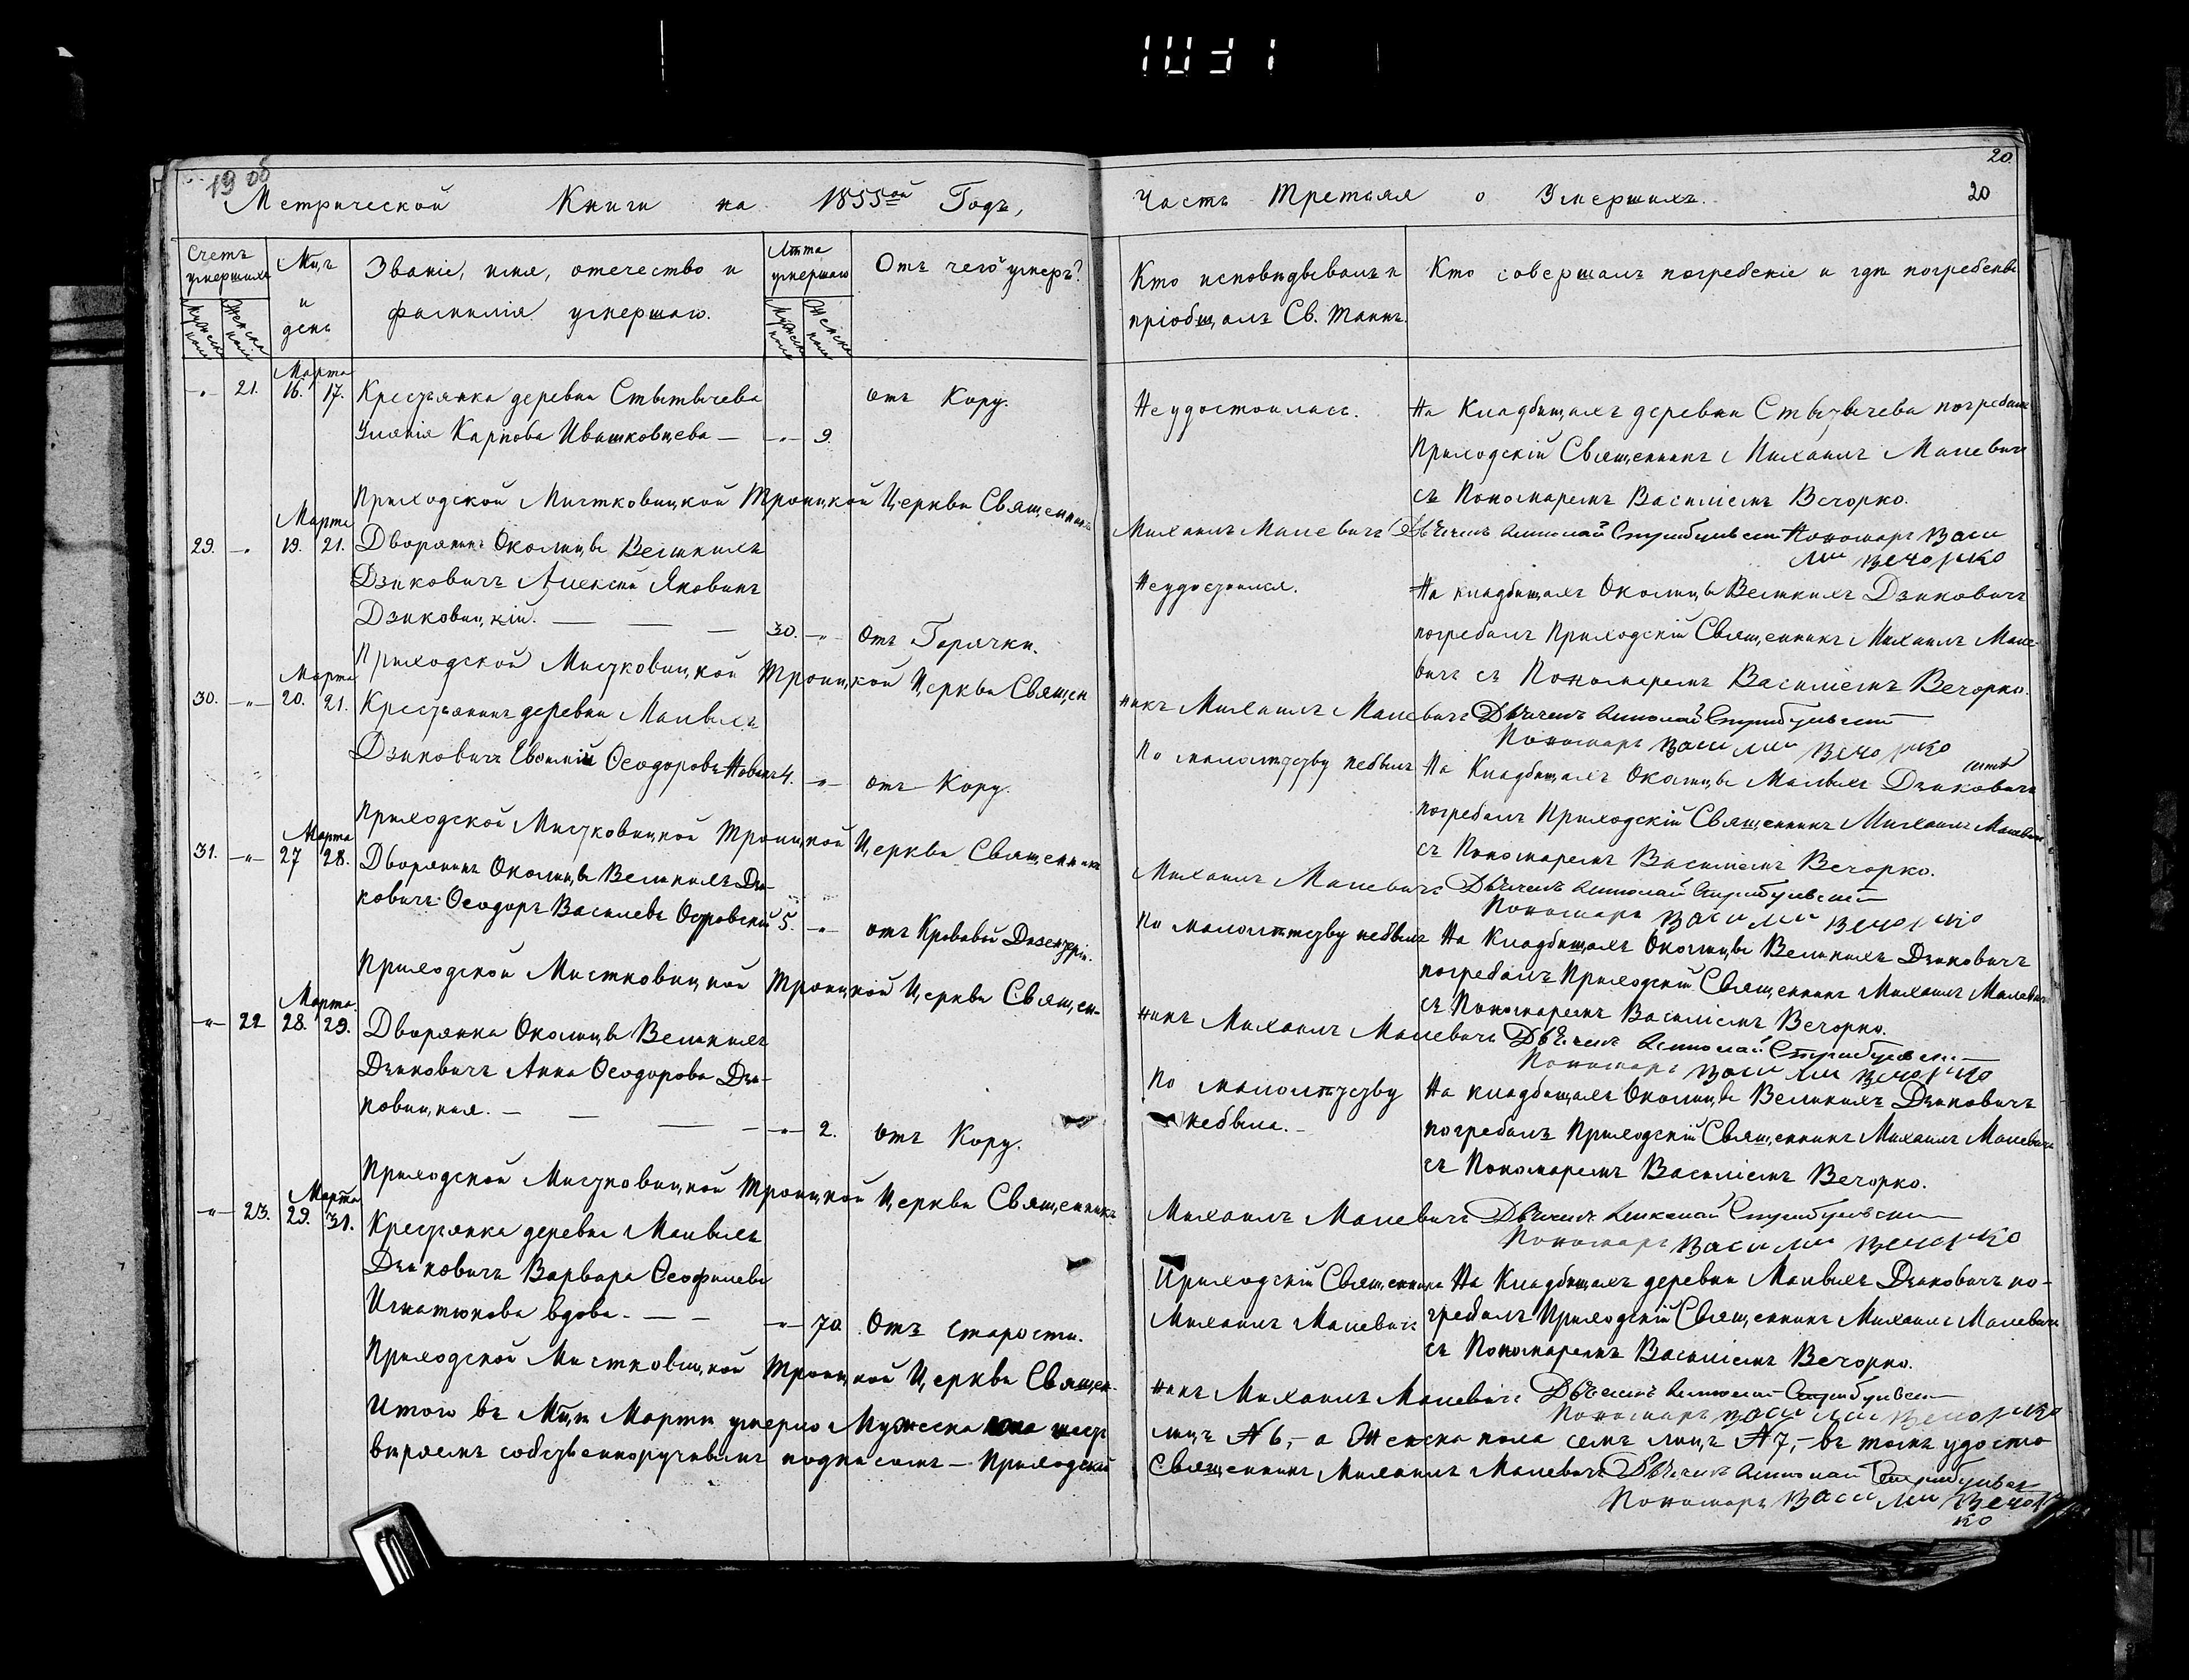 1031
19 об
20
20
Метрической Книги на 1855ой Годъ,
Часть Третьяя о Умершихъ.
Счетъ умершихъ
Мужеска пола
Женска пола
Мцъ и день
Званіе, имя, отечество и фамилія умершаго.
Лѣта умершаго
Мужеска пола
Женска пола
Отъ чего умеръ?
Кто исповѣдывалъ и пріобщалъ Св. Таинъ.
Кто совершалъ погребеніе и гдѣ погребены
Марта
21. 16. 17. Крестьянка деревни Стытычева
отъ Кору.
Неудостоилась.
На Кладбищахъ деревни Стытычева погребалъ
Уліянія Карпова Ивашковцева — 9.
Приходскій Священникъ Михаилъ Малевичъ
съ Пономаремъ Василіемъ Вечорко.
Приходской Мистковицкой Троицкой Церкви Священникъ
Михаилъ Малевичъ Дьячекъ Николай Стрибульскій Пономарь Васи
лій Вечорко
Марта
29. 19. 21. Дворянинъ Околицы Великихъ
Дзиковичъ Алексій Яковинъ
Неудостоился.
На кладбищахъ Околицы Великихъ Дзиковичъ
Дзиковицкій. — 30. Отъ Горячки.
погребалъ Приходскій Священникъ Михаилъ Мале-
вичъ съ Пономаремъ Василіемъ Вечорко.
Приходской Мистковицкой Троицкой Церкви Священ
никъ Михаилъ Малевичъ Дьячекъ Николай Стрибульскій
Пономарь Василій Вечорко
Марта
30. 20. 21. Крестьянинъ деревни Малыхъ
Дзиковичъ Евфимій Ѳеодоровъ 4. отъ Кору.
По малолѣтству небылъ
На Кладбищахъ Околицы Малыхъ Дзиковичъ
погребалъ Приходскій Священникъ Михаилъ Малевичъ
съ Пономаремъ Василіемъ Вечорко.
Приходской Мистковицкой Троицкой Церкви Священникъ
Михаилъ Малевичъ Дьячекъ Николай Стрибульскій
Пономарь Василій Вечорко
Марта
31. 27 28. Дворянинъ Околицы Великихъ Дзи-
ковичъ Ѳеодоръ Василевъ Островскій 5. отъ Кровавой Дизентеріи.
По малолѣтству небылъ
На Кладбищахъ Околицы Великихъ Дзиковичъ
погребалъ Приходскій Священникъ Михаилъ Малевичъ
съ Пономаремъ Василіемъ Вечорко.
Приходской Мистковицкой Троицкой Церкви Священ-
никъ Михаилъ Малевичъ Дьячекъ Николай Стрибульскій
Пономарь Василій Вечорко
Марта
22 28. 29. Дворянка Околицы Великихъ
Дзиковичъ Анна Ѳеодорова Дзи-
ковицкая. — 2. отъ Кору.
По малолѣтству
небыла.
На кладбищахъ Околицы Великихъ Дзиковичъ
погребалъ Приходскій Священникъ Михаилъ Малевичъ
съ Пономаремъ Василіемъ Вечорко.
Приходской Мистковицкой Троицкой Церкви Священникъ
Михаилъ Малевичъ Дьячекъ Николай Стрибульскій
Пономарь Василій Вечорко
Марта
23. 29. 31. Крестьянка деревни Малыхъ
Дзиковичъ Варвара Ѳеофилева
Игнатюкова вдова. — 70. Отъ старости.
Приходскій Священникъ
Михаилъ Малевичъ
На Кладбищахъ деревни Малыхъ Дзиковичъ по-
гребалъ Приходскій Священникъ Михаилъ Малевичъ
съ Пономаремъ Василіемъ Вечорко.
Приходской Мистковицкой Троицкой Церкви Священ-
никъ Михаилъ Малевичъ Дьячекъ Николай Стрибульскій
Пономарь Василій Вечорко
Итого въ Мцѣ Мартѣ умерло Мужеска пола шесть
лицъ № 6,- а Женска пола семь лицъ № 7,- въ томъ удосто
вѣряемъ собственноручнымъ подписомъ — Приходскій
Священникъ Михаилъ Малевичъ Дьячекъ Николай Стрибульскій
Пономарь Василій Вечор
ко